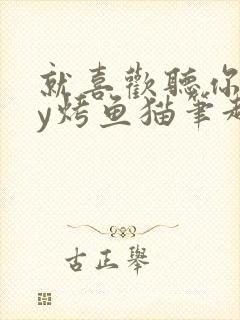 就喜歡聽你
y烤鱼猫筆趣
古正舉